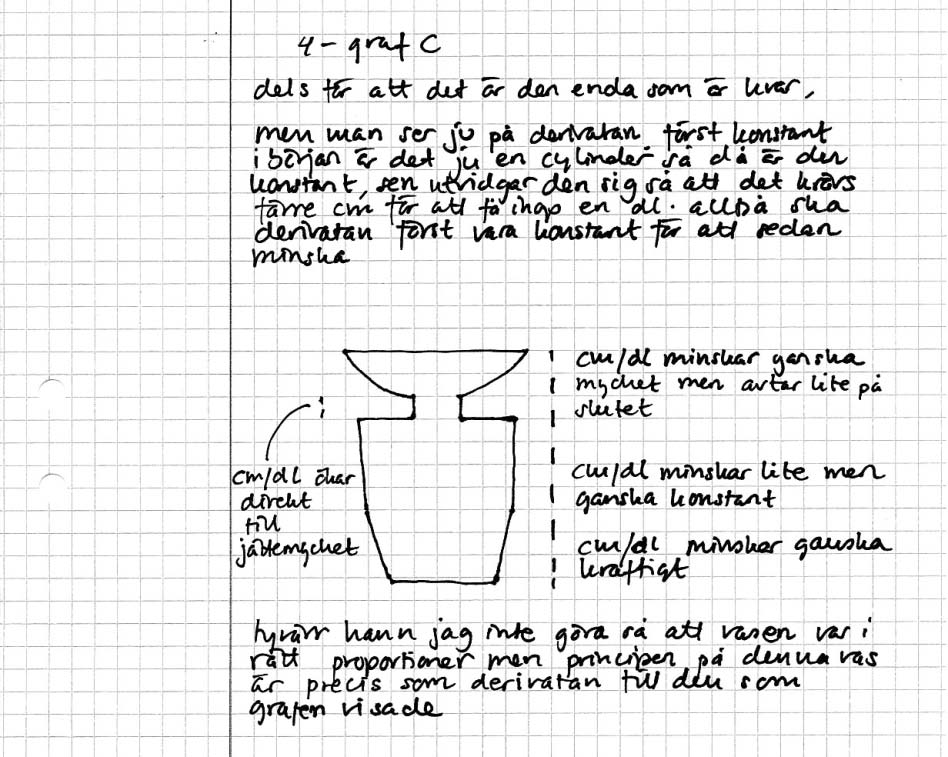 4 - graf C
dels för att det är den enda som är kvar,
men man ser ju på derivatan först konstant
i början är det ju en cylinder så då är den
konstant, sen utvidgar den sig så att det krävs
färre cm för att få ihop en dl. alltså ska
derivatan först vara konstant för att sedan
minska
cm/dl minskar ganska
mycket men avtar lite på
slutet
cm/dl ökar
direkt
till
jättemycket
cm/dl minskar lite men
ganska konstant
cm/dl minskar ganska
kraftigt
tyvärr hann jag inte göra så att vasen var i
rätt proportioner men principen på denna vas
är precis som derivatan till den som
grafen visade